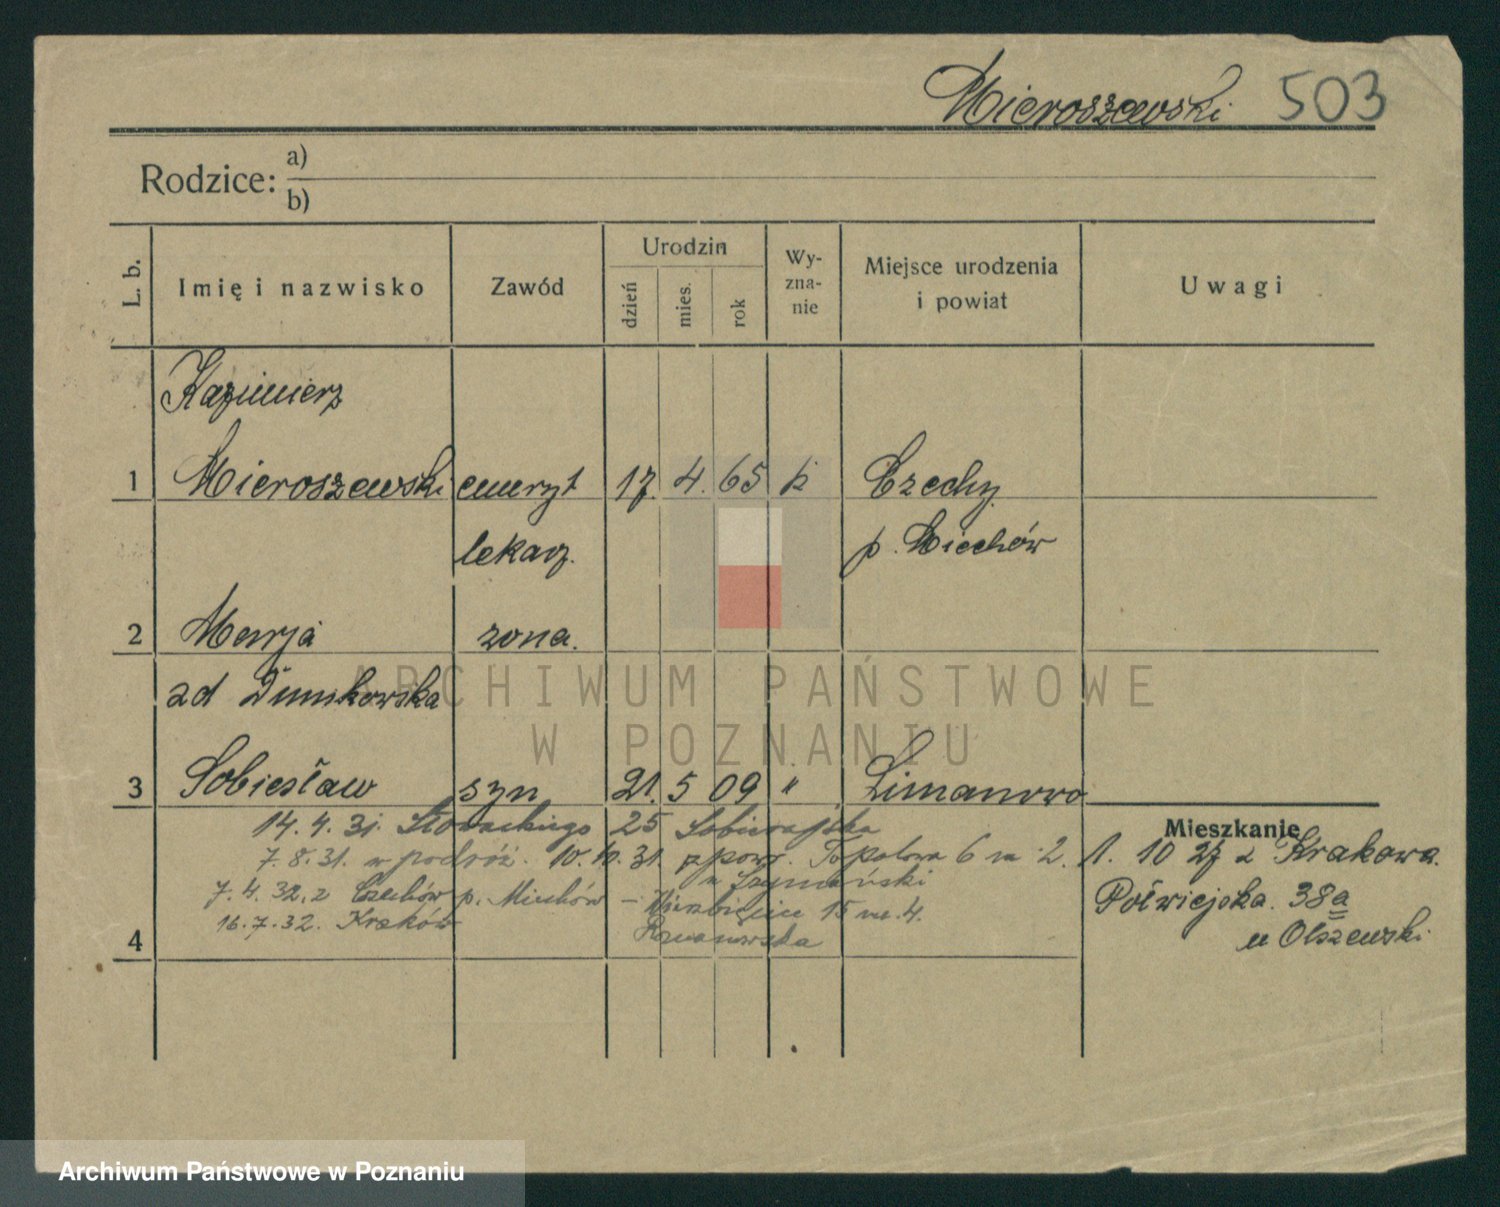 Mieroszewski 503
Rodzice: a)
b)
L. b. Imię i nazwisko Zawód Urodzin dzień mies. rok Wy-zna-nie Miejsce urodzenia i powiat Uwagi
Kazimierz
1 Mieroszewski emeryt 17. 4. 65 k Czechy
lekarz. p. Miechów
2 Marja żona.
zd Dunikowska
3 Sobiesław syn 21. 5 09 " Limanowo
14. 4. 31. Słowackiego 25
Mieszkanie
7. 8. 31. w podróż. 10. 31. Topolowa 6 m 2. 1. 10 27 z Krakowa.
u Szymański
7. 4. 32. z Czechów p. Miechów – Wierzbięcice 15 m. 4. Półwiejska. 38a
16. 7. 32. Kraków
4 u Olszewski
ARCHIWUM PAŃSTWOWE
W POZNANIU
Archiwum Państwowe w Poznaniu